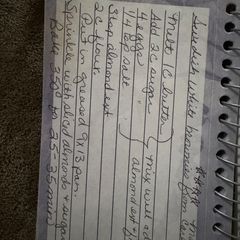 Swedish white brownies from
melt 1 C butter
Add 2 C sugar
4 eggs
1/4 tsp salt
mix well ad
almond ext +
3 tsp almond ext
2 C flour.
Put in greased 9x13 pan.
Sprinkle with sliced almonds + sugar
Bake 350° for 25-35 min